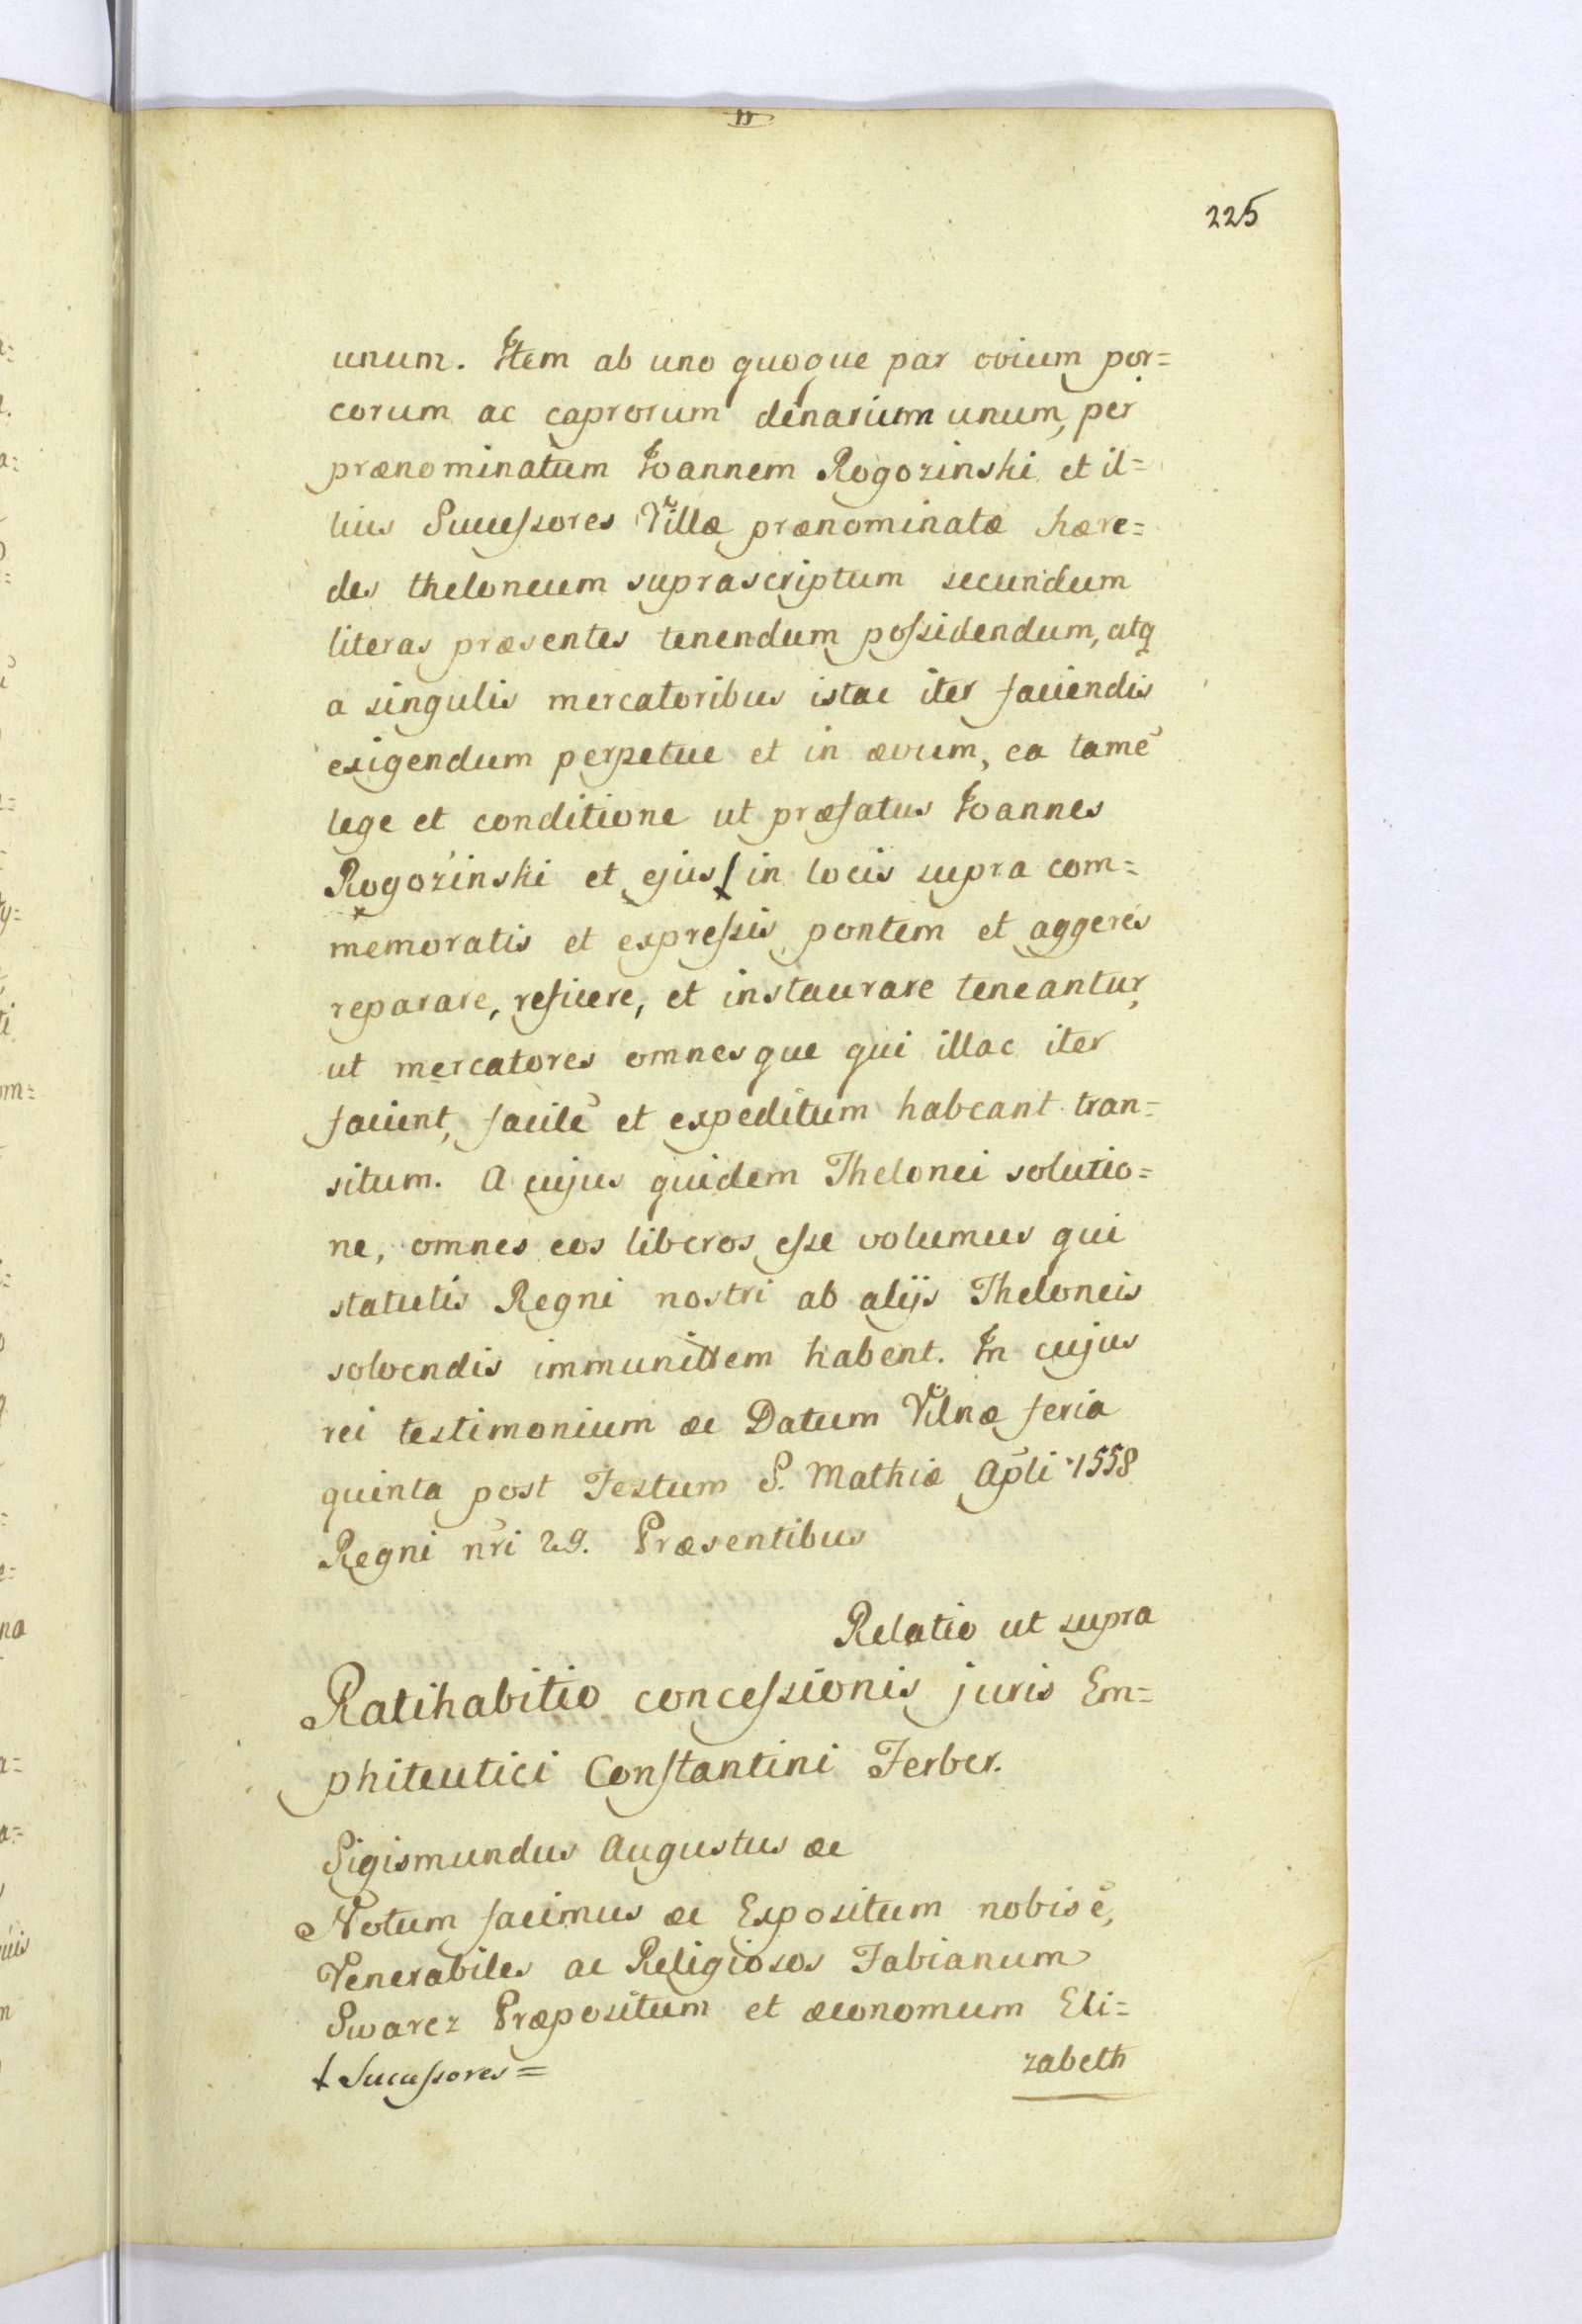 225
unum. Item ab uno quoque par ovium por=
corum ac caprorum denarium unum, per
prænominatum Joannem Rogozinski et il=
lius Successores Villæ prænominatæ hære=
des theloneum suprascriptum secundum
literas præsentes tenendum possidendum, atq
a singulis mercatoribus istac iter faciendis
exigendum perpetue et in ævum, ea tamē
lege et conditione ut præfatus Joannes
Rogozinski et ejus ƚ in locis supra com=
memoratis et expressis pontem et aggeres
reparare, reficere, et instaurare teneantur,
ut mercatores omnesque qui illac iter
facient, facilē et expeditum habeant tran=
situm. A cujus quidem Thelonei solutio=
ne, omnes eos liberos esse volumus qui
statutis Regni nostri ab alijs Theloneis
solvendis immunittem habent. In cujus
rei testimonium æc Datum Vilnæ feria
quinta post Festum S. Mathiæ Apl̄i 1558
Regni nr̄i 29. Præsentibus
Relatio ut supra
Ratihabitio concessionis juris Em=
phiteutici Constantini Ferber.
Sigismundus Augustus æc
Notum facimus æc Expositum nobis ē,
Venerabiles ac Religiosos Fabianum
Swarcz Præpositum et æconomum Eli=
ƚ Successores=
zabeth